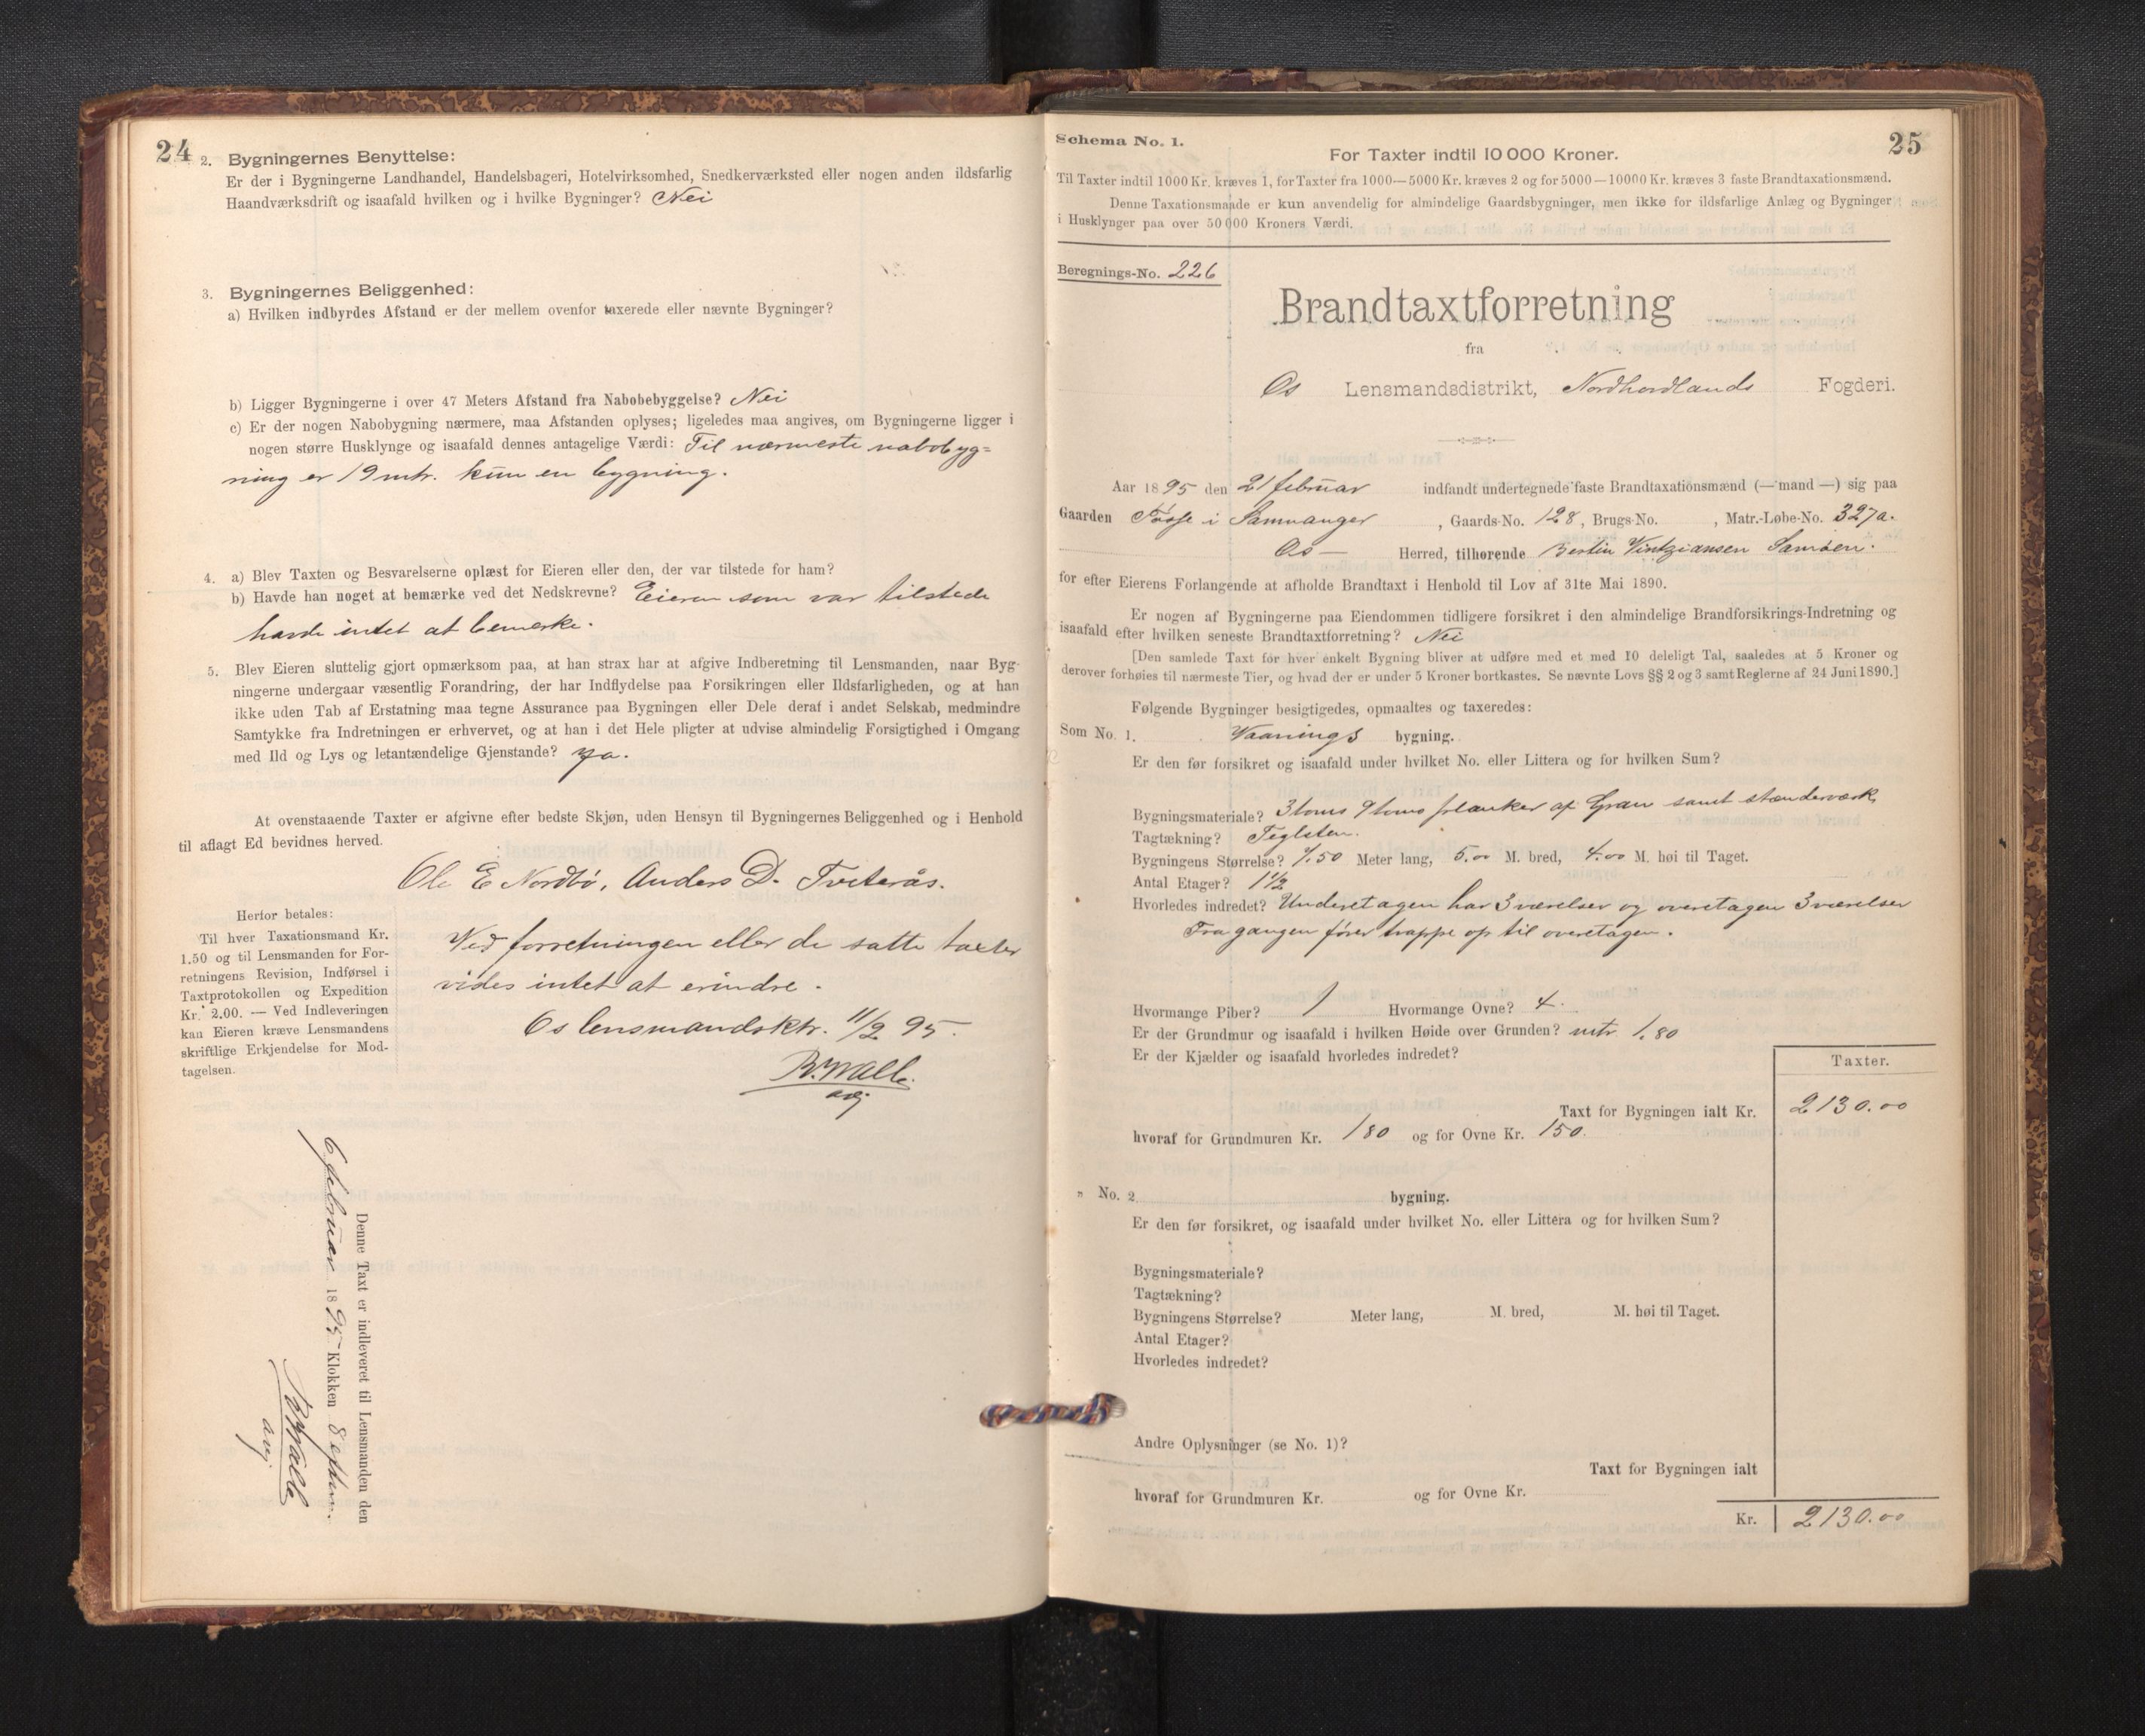 24
2. Bygningernes Benyttelse:
Er der i Bygningerne Landhandel, Handelsbageri, Hotelvirksomhed, Snedkerværksted eller nogen anden ildsfarlig
Haandværksdrift og isaafald hvilken og i hvilke Bygninger? Nei
3. Bygningernes Beliggenhed:
a) Hvilken indbyrdes Afstand er der mellem ovenfor taxerede eller nævnte Bygninger?
b) Ligger Bygningerne i over 47 Meters Afstand fra Nabobebyggelse? Nei
c) Er der nogen Nabobygning nærmere, maa Afstanden oplyses; ligeledes maa angives, om Bygningerne ligger i
nogen større Husklynge og isaafald dennes antagelige Værdi: Til nærmeste nabobyg=
ning er 19 mtr. kun en bygning.
4. a) Blev Taxten og Besvarelserne oplæst for Eieren eller den, der var tilstede for ham?
b) Havde han noget at bemærke ved det Nedskrevne? Eieren som var tilstede
havde intet at bemerke.
5. Blev Eieren sluttelig gjort opmærksom paa, at han strax har at afgive Indberetning til Lensmanden, naar Byg-
ningerne undergaar væsentlig Forandring, der har Indflydelse paa Forsikringen eller Ildsfarligheden, og at han
ikke uden Tab af Erstatning maa tegne Assurance paa Bygningen eller Dele deraf i andet Selskab, medmindre
Samtykke fra Indretningen er erhvervet, og at han i det Hele pligter at udvise almindelig Forsigtighed i Omgang
med Ild og Lys og letantændelige Gjenstande? ya.
At ovenstaaende Taxter er afgivne efter bedste Skjøn, uden Hensyn til Bygningernes Beliggenhed og i Henhold
til aflagt Ed bevidnes herved.
Ole E Nordbö, Anders D. Tveterås.
Herfor betales:
Til hver Taxationsmand Kr.
1.50 og til Lensmanden for For-
retningens Revision, Indførsel i
Taxtprotokollen og Expedition
Kr. 2.00. — Ved Indleveringen
kan Eieren kræve Lensmandens
skriftlige Erkjendelse for Mod-
tagelsen.
Ved forretningen eller de satte taxter
vides intet at erindre.
Os lensmandsktr. 11/2 95.
Denne Taxt er indleveret til Lensmanden den
6 februar 1895 Klokken 8 efterm.
25
Schema No. 1.
For Taxter indtil 10 000 Kroner.
Til Taxter indtil 1000 Kr. kræves 1, for Taxter fra 1000—5000 Kr. kræves 2 og for 5000—10000 Kr. kræves 3 faste Brandtaxationsmænd.
Denne Taxationsmaade er kun anvendelig for almindelige Gaardsbygninger, men ikke for ildsfarlige Anlæg og Bygninger
i Husklynger paa over 50 000 Kroners Værdi.
Beregnings-No. 226
Brandtaxtforretning
fra
Os Lensmandsdistrikt, Nordhordlands Fogderi.
Aar 1895 den 21 februar indfandt undertegnede faste Brandtaxationsmænd (— mand —) sig paa
Gaarden Tösse i Samnanger, Gaards-No. 128, Brugs-No. , Matr.-Løbe-No. 327a.
Os — Herred, tilhørende Bertin
for efter Eierens Forlangende at afholde Brandtaxt i Henhold til Lov af 31te Mai 1890.
Er nogen af Bygningerne paa Eiendommen tidligere forsikret i den almindelige Brandforsikrings-Indretning og
isaafald efter hvilken seneste Brandtaxtforretning? Nei
[Den samlede Taxt for hver enkelt Bygning bliver at udføre med et med 10 deleligt Tal, saaledes at 5 Kroner og
derover forhøies til nærmeste Tier, og hvad der er under 5 Kroner bortkastes. Se nævnte Lovs §§ 2 og 3 samt Reglerne af 24 Juni 1890.]
Følgende Bygninger besigtigedes, opmaaltes og taxeredes:
Som No. 1. Vaanings bygning.
Er den før forsikret og isaafald under hvilket No. eller Littera og for hvilken Sum?
Bygningsmateriale? 3 toms 9 toms planker af Gran samt stænderværk
Tagtækning? Teglsten.
Bygningens Størrelse? 7.50 Meter lang, 5.00 M. bred, 4.00 M. høi til Taget.
Antal Etager? 1½
Hvorledes indredet? Underetagen har 3 værelser og overetagen 3 værelser
Fra gangen fører trappe op til overetagen.
Hvormange Piber? 1 Hvormange Ovne? 4.
Er der Grundmur og isaafald i hvilken Høide over Grunden? mtr. 1.80
Er der Kjælder og isaafald hvorledes indredet?
Taxter.
Taxt for Bygningen ialt Kr. 2130.00
hvoraf for Grundmuren Kr. 180 og for Ovne Kr. 150.
" No. 2. bygning.
Er den før forsikret, og isaafald under hvilket No. eller Littera og for hvilken Sum?
Bygningsmateriale?
Tagtækning?
Bygningens Størrelse? Meter lang, M. bred, M. høi til Taget.
Antal Etager?
Hvorledes indredet?
Andre Oplysninger (se No. 1)?
Taxt for Bygningen ialt
hvoraf for Grundmuren Kr. og for Ovne Kr.
Kr. 2130.00